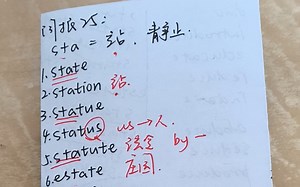 词根25:
sta = 站. 静止.
1.state
2.station 站.
3.statue
4.status us→人.
5.statute 法令 by一
6.estate 庄园.